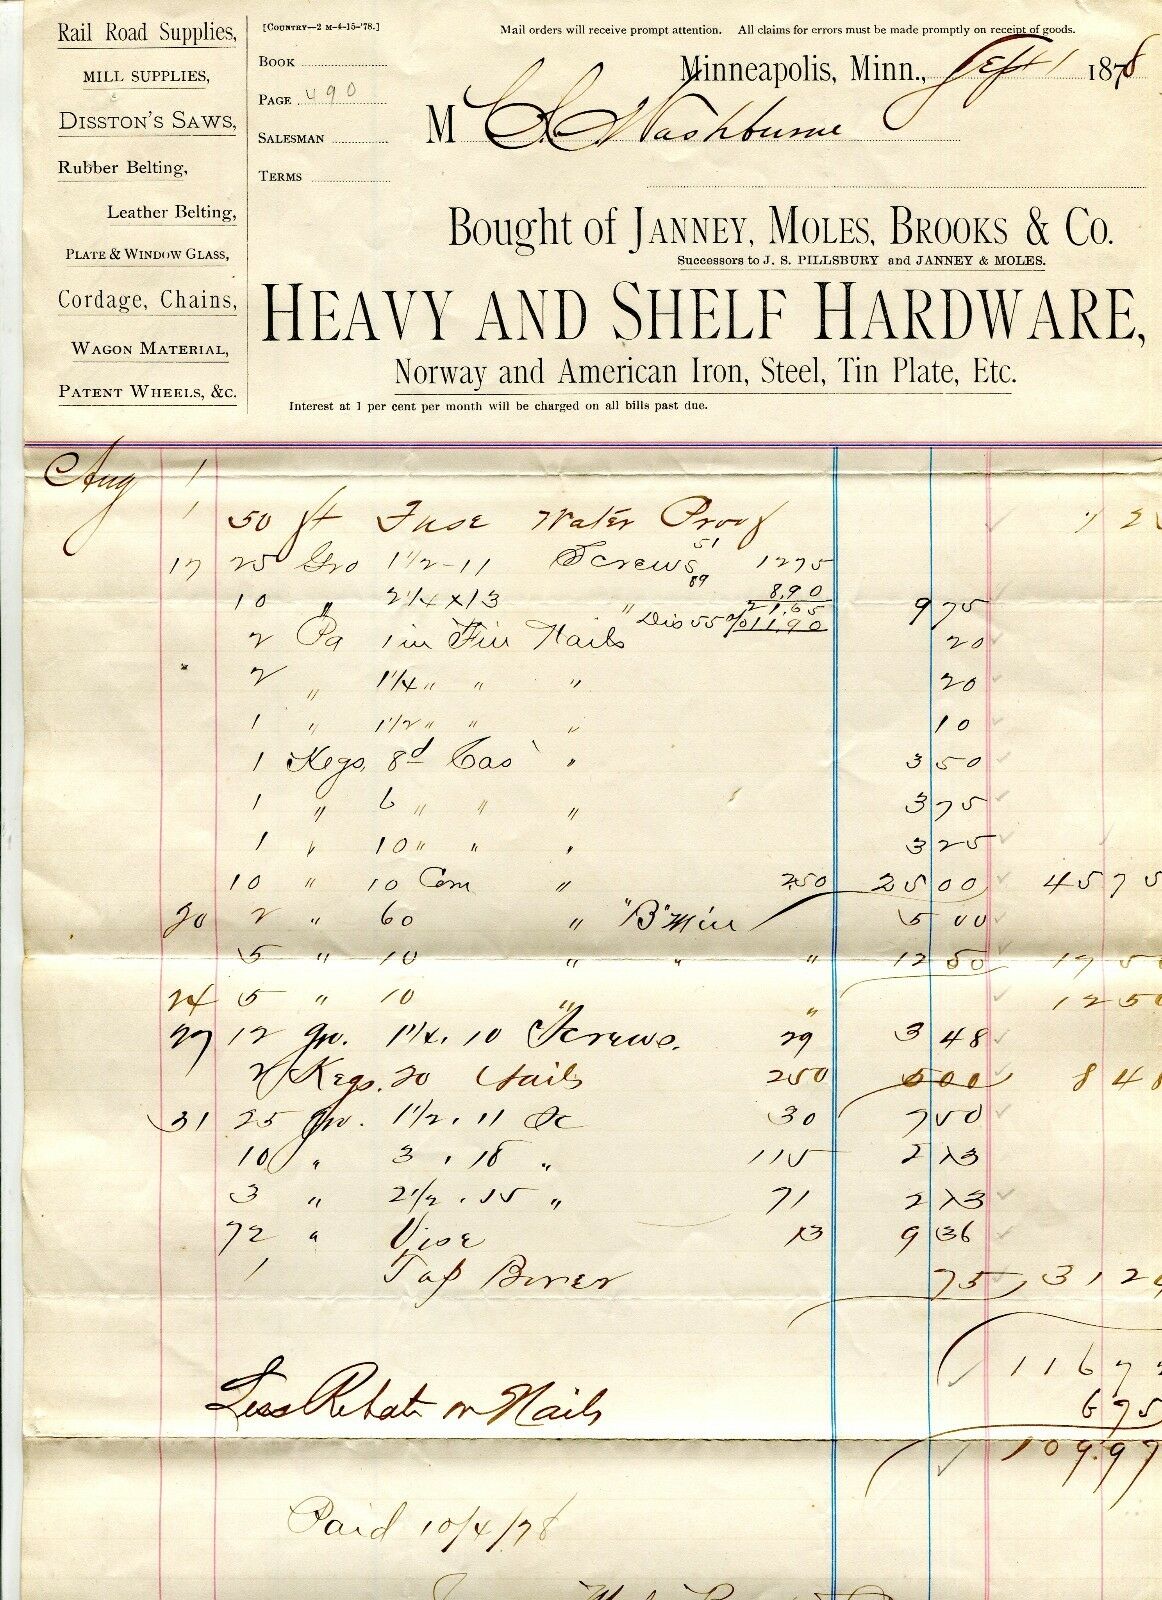 Rail Road Supplies,
MILL SUPPLIES,
DISSTON'S SAWS,
Rubber Belting,
Leather Belting,
PLATE & WINDOW GLASS,
Cordage, Chains,
WAGON MATERIAL,
PATENT WHEELS, &C.
[COUNTRY—2 M-4-15-'78.]
BOOK
PAGE 490
SALESMAN
TERMS
Mail orders will receive prompt attention. All claims for errors must be made promptly on receipt of goods.
Minneapolis, Minn., Sept 1 1878
M Washburne
Bought of JANNEY, MOLES, BROOKS & CO.
Successors to J. S. PILLSBURY and JANNEY & MOLES.
HEAVY AND SHELF HARDWARE,
Norway and American Iron, Steel, Tin Plate, Etc.
Interest at 1 per cent per month will be charged on all bills past due.
Aug 1
1 50 ft Fuse Water Proof
17 25 Gro 1 1/2-11 Screws 51 1275
10 " 2 1/4 x 13 " 89 8,90
21,65
Dis 55 % 11,90 9 75
2 Pa 1 in Fin Nails 20
2 " 1 1/4 " " " 20
1 " 1 1/2 " " " 10
1 Kegs 8d Cas " 3 50
1 " 6 " " " 3 75
1 " 10 " " " 3 25
10 " 10 Com " 250 25 00 45 75
20 2 " 60 " "B" Mill 5 00
5 " 10 " " " 12 50 17 5
24 5 " 10 " " 12 50
27 12 gro. 1 1/4 . 10 Screws. 29 3 48
2 Kegs. 20 Nails 250 5 00 8 48
31 25 gro. 1 1/2 . 11 Sc 30 7 50
10 " 3 . 18 " 115
3 " 2 1/2 . 15 " 71 2 13
72 " Vise 13 9 36
1 Tap Borer 75 31 2
116 7
Less Rebate on Nails 6 75
109.97
Paid 10/4/78